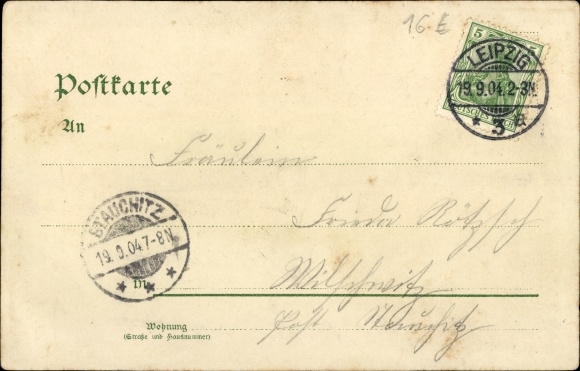 16 E
5
LEIPZIG
19.9.04. 2-3N.
* 3 a
DEUTSCHES REICH
Postkarte
An
Fräulein
Frieda Rötzsch
STAUCHITZ
19.9.04. 7-8N.
* * *
in
Wilschwitz
Post Stauchitz
Wohnung
(Straße und Hausnummer)